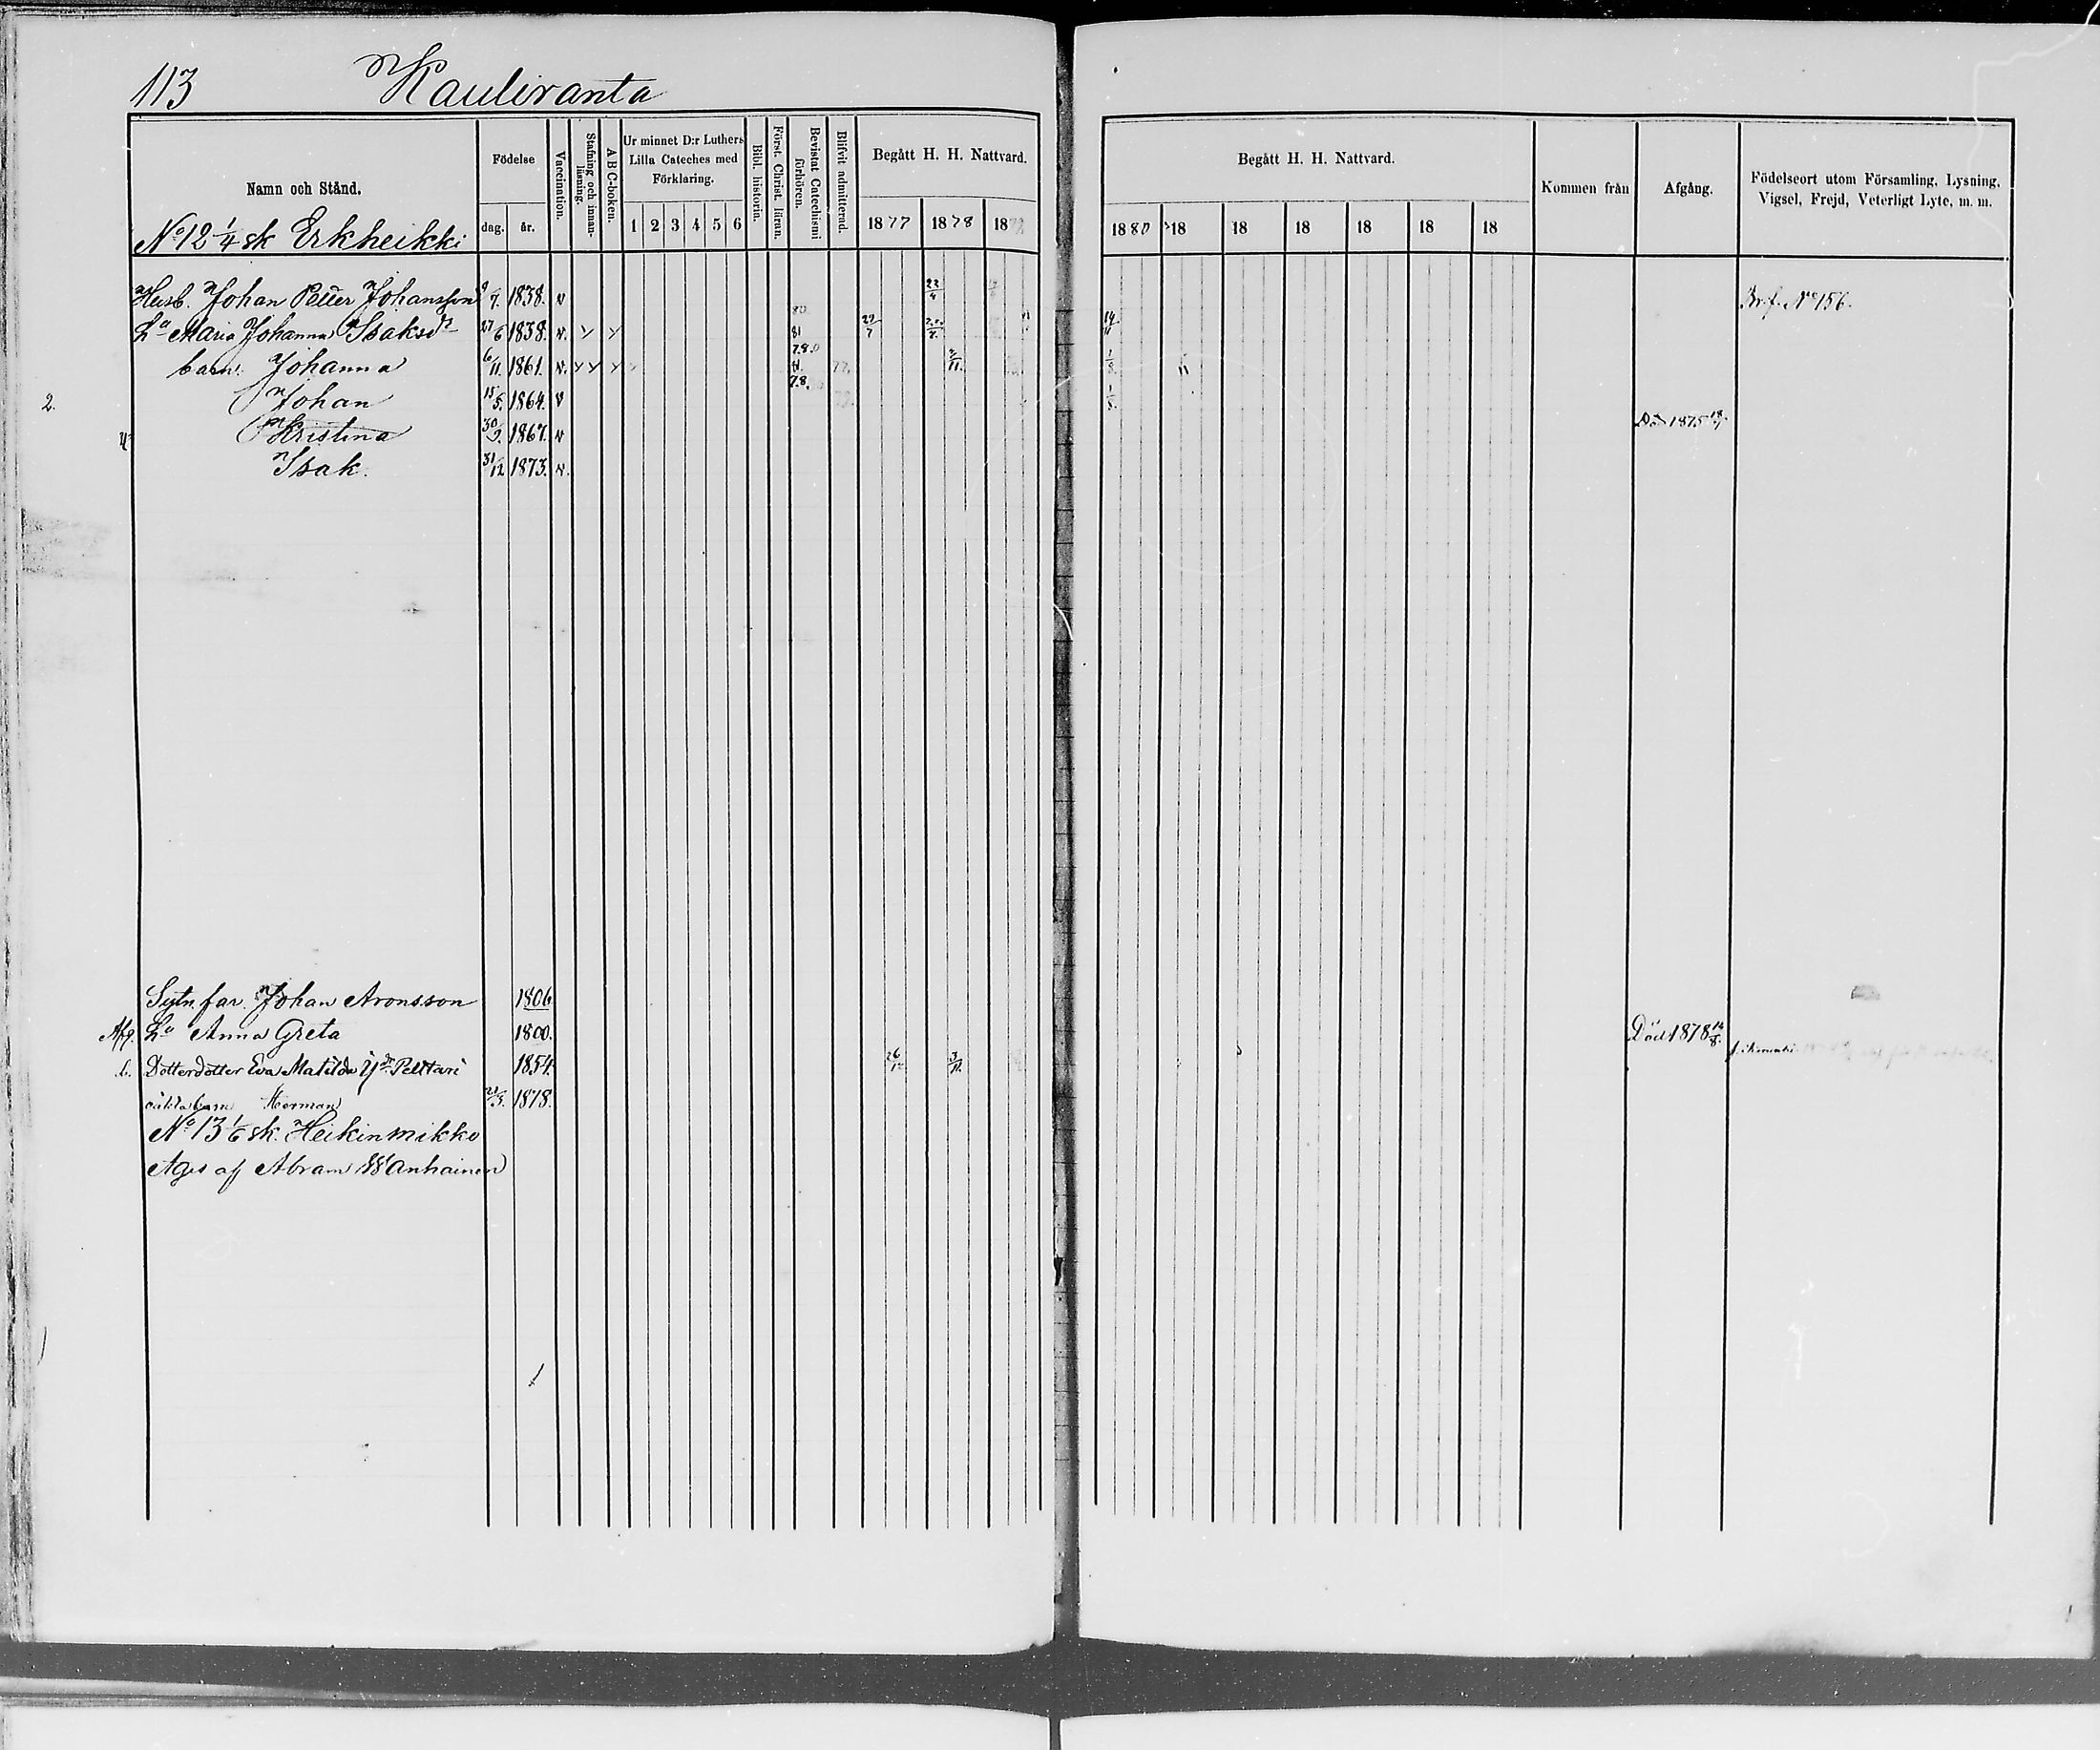 113 Kauliranta
Namn och Stånd. Födelse dag. år. Vaccination. Stafning och innanläsning. A B C-boken. Ur minnet D:r Luthers Lilla Cateches med Förklaring. 1 2 3 4 5 6 Bibl. historia. Först. Christ. läran. Bevistat Catechismi förhören. Blifvit admitterad. Begått H. H. Nattvard. 1877 1878 18
Begått H. H. Nattvard. 1880 18 18 18 18 18 18 Kommen från Afgång. Födelseort utom Församling, Lysning, Vigsel, Frejd, Veterligt Lyte, m. m.
No 12 1/4 sk Erkheikki
Husb. Johan Petter Johansson 9/7. 1838. v 22/4 Brf. No 156.
Ha Maria Johanna Isaksdr 27/6 1838. v. 81
barn: Johanna 6/11. 1861. v. 77.
2. Johan 15/5. 1864. v 1/8.
Kristina 30/9. 1867. v Död 1875
Isak. 31/12 1873. v.
Sytn. far. Johan Aronsson 1806
Afg. Ha Anna Greta 1800. Död 1878 14/8.
Dotterdotter Eva Matilda Pelttari 1854. 26/12 3/11.
oäkta barn Herman 1878.
No 13 1/6 sk. Heikinmikko
Äges af Abram Wanhainen